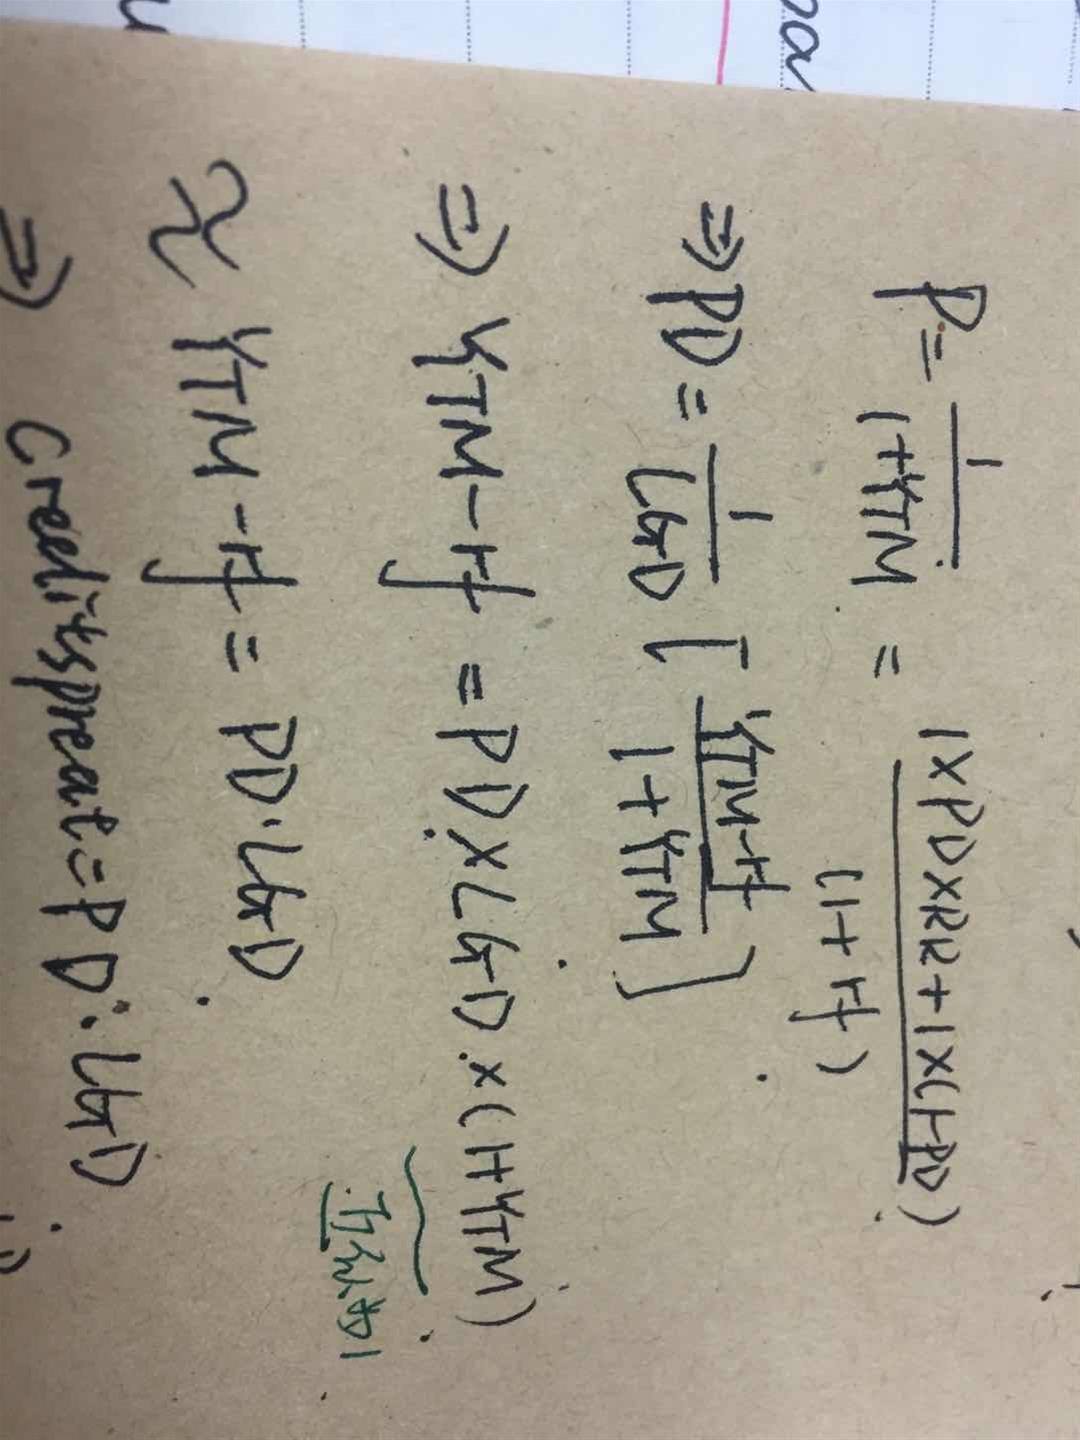 P = 1/(1+YTM) = (1×PD×RR+1×(1-PD))/(1+rf)
⇒ PD = 1/LGD [(YTM-rf)/(1+YTM)]
⇒ YTM-rf = PD×LGD×(1+YTM)
≈ YTM-rf = PD·LGD
⇒ Creditspread=PD·LGD